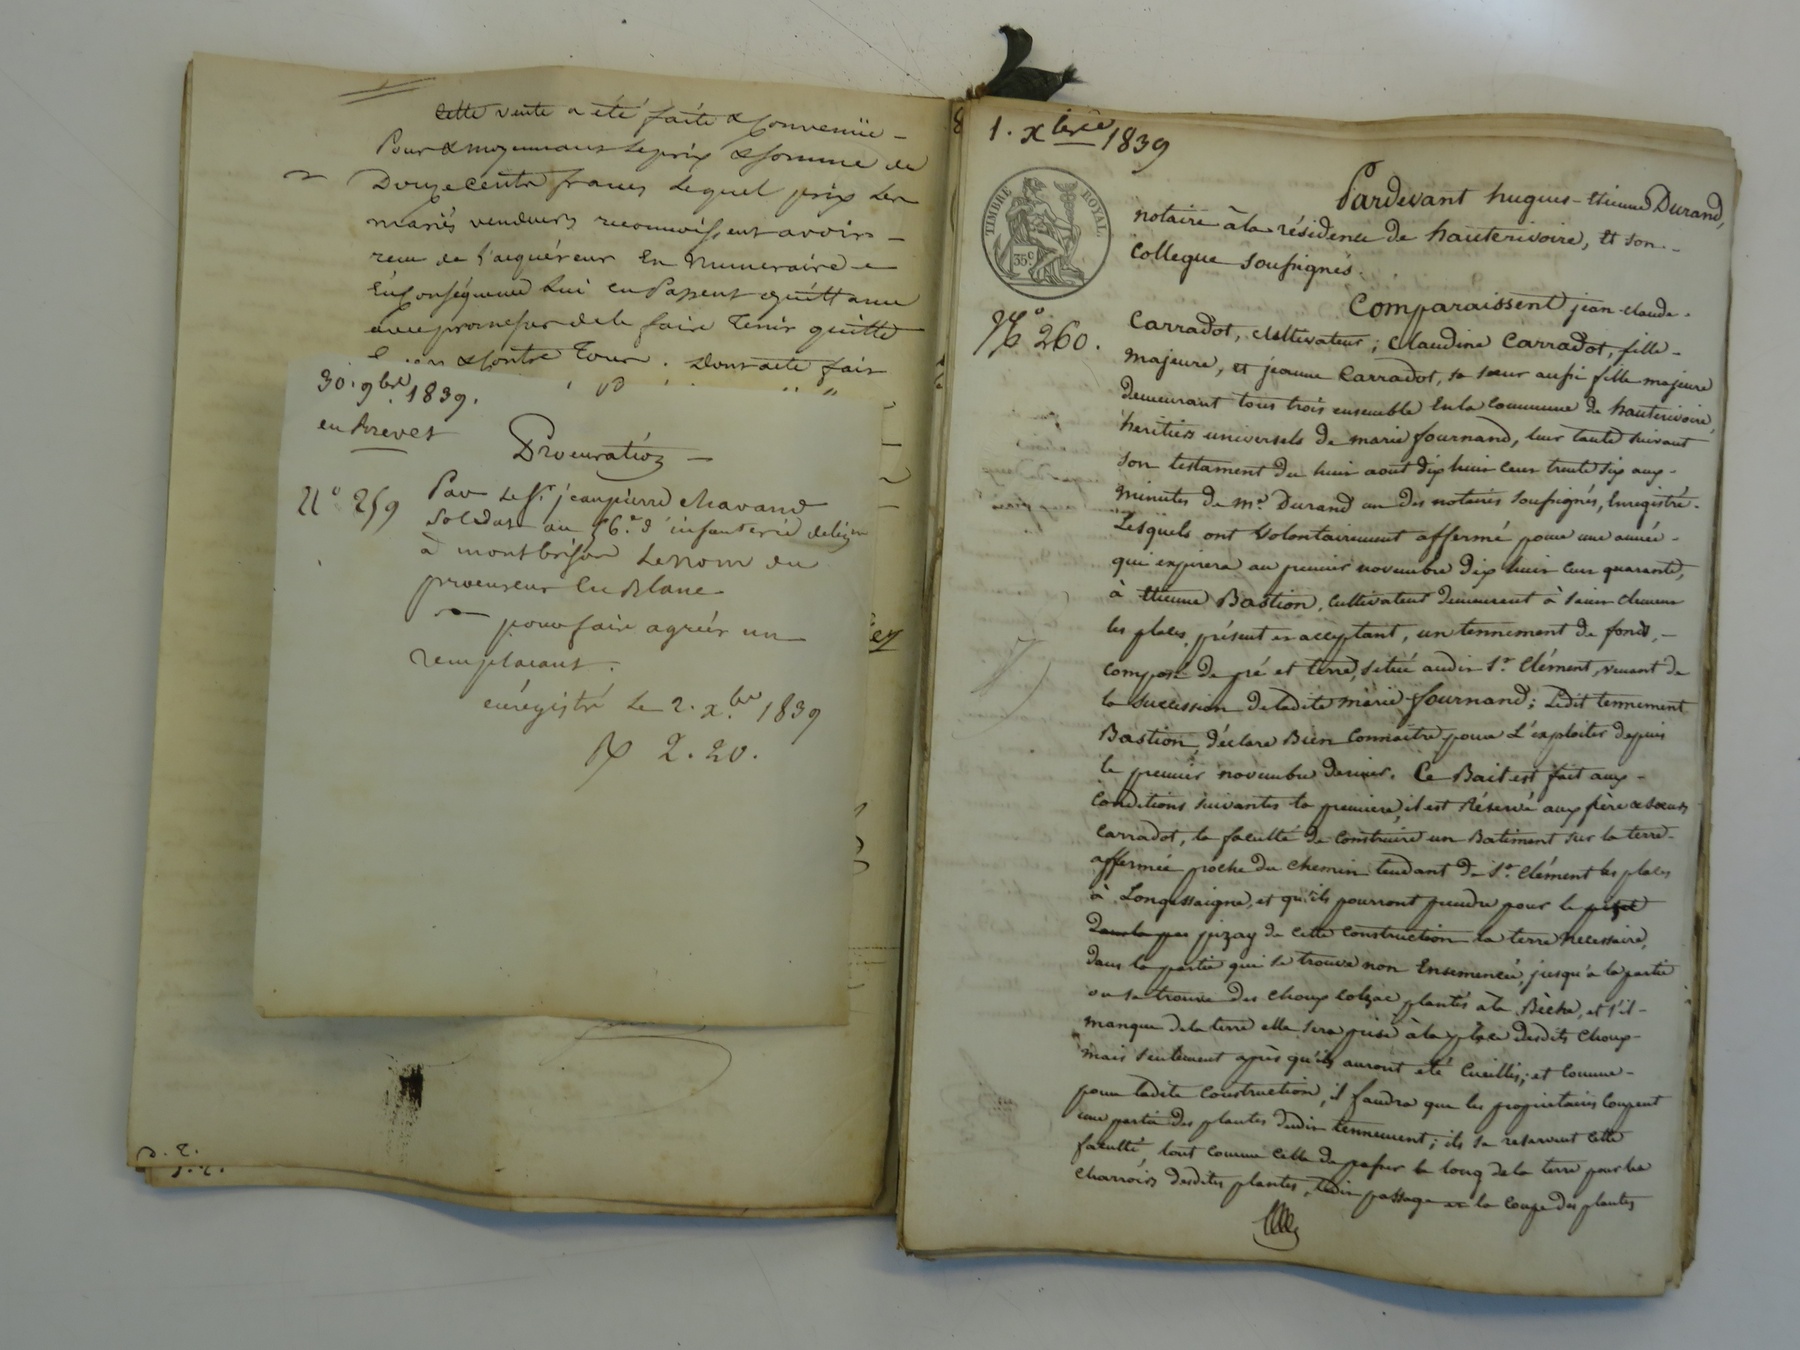 Cette vente a été faite & Convenüe
Pour & moyennant le prix & somme de
Douze cents francs lequel prix les
mariés vendeurs reconnoissent avoir
reçu de l'acquéreur En Numeraire
En Conséquence Lui en Passent quittance
avec promesse de le faire Tenir quitte
& Contre Tous. Dont acte fait
30. 9bre 1839.
en Brevet
Procuration
N° 259
Par le Sr jean pierre Chavand
Soldat au 56e d'infanterie de ligne
à montbrison Le nom du
procureur En Blanc
pour faire agréer un
remplacant.
enregistré Le 2. xbre 1839
R 2. 20.
D. E.
D. E.
1. xbre 1839
TIMBRE ROYAL.
35c
Pardevant hugues-Etienne Durand,
notaire à la résidence de hauterivoire, Et son
Collegue soussignés.
N° 260.
Comparaissent jean-claude
Carradot, cultivateur; Claudine Carradot, fille
majeure, et jeanne Carradot, sa sœur aussi fille majeure
demeurant tous trois ensemble En la Commune de hauterivoire,
héritiers universels de marie fournand, leur tante suivant
son testament du huit aout dix huit cent trente six aux
minutes de me Durand un des notaires soussignés, Enregistré.
Lesquels ont Volontairement affermé pour une année
qui expirera au premier novembre dix huit cent quarante,
à Etienne Bastion, Cultivateur demeurant à saint clement
les places, présent et acceptant, un tennement de fonds,
composé de pré et terre, situé audit St Clément, venant de
la succession de ladite marie fournand; Ledit tennement
Bastion, déclare Bien Connaître pour L'exploiter depuis
le premier novembre dernier. Ce Bail est fait aux
Conditions suivantes la premiere, il est Réservé aux frère & sœurs
Carradot, la faculté de Construire un Batiment sur la terre
affermée proche du chemin tendant de St Clément les places
à Longessaigne, et qu'ils pourront prendre pour le
pizay de cette Construction la terre Necessaire,
dans la partie qui se trouve non Ensemencée, jusqu'a la partie
ou se trouve des choux Colzac plantés à la Bèche, et s'il
manque de la terre elle sera prise à la place desdits Choux
mais seulement après qu'ils auront été Cueillis; et Comme
pour ladite Construction, il faudra que les propriétaires Coupent
une partie des plantes dudit tennement; ils se reservent Cette
faculté, tout comme Celle de passer le long de la terre pour les
Charrois desdites plantes, ledit passage et la Coupe des plantes